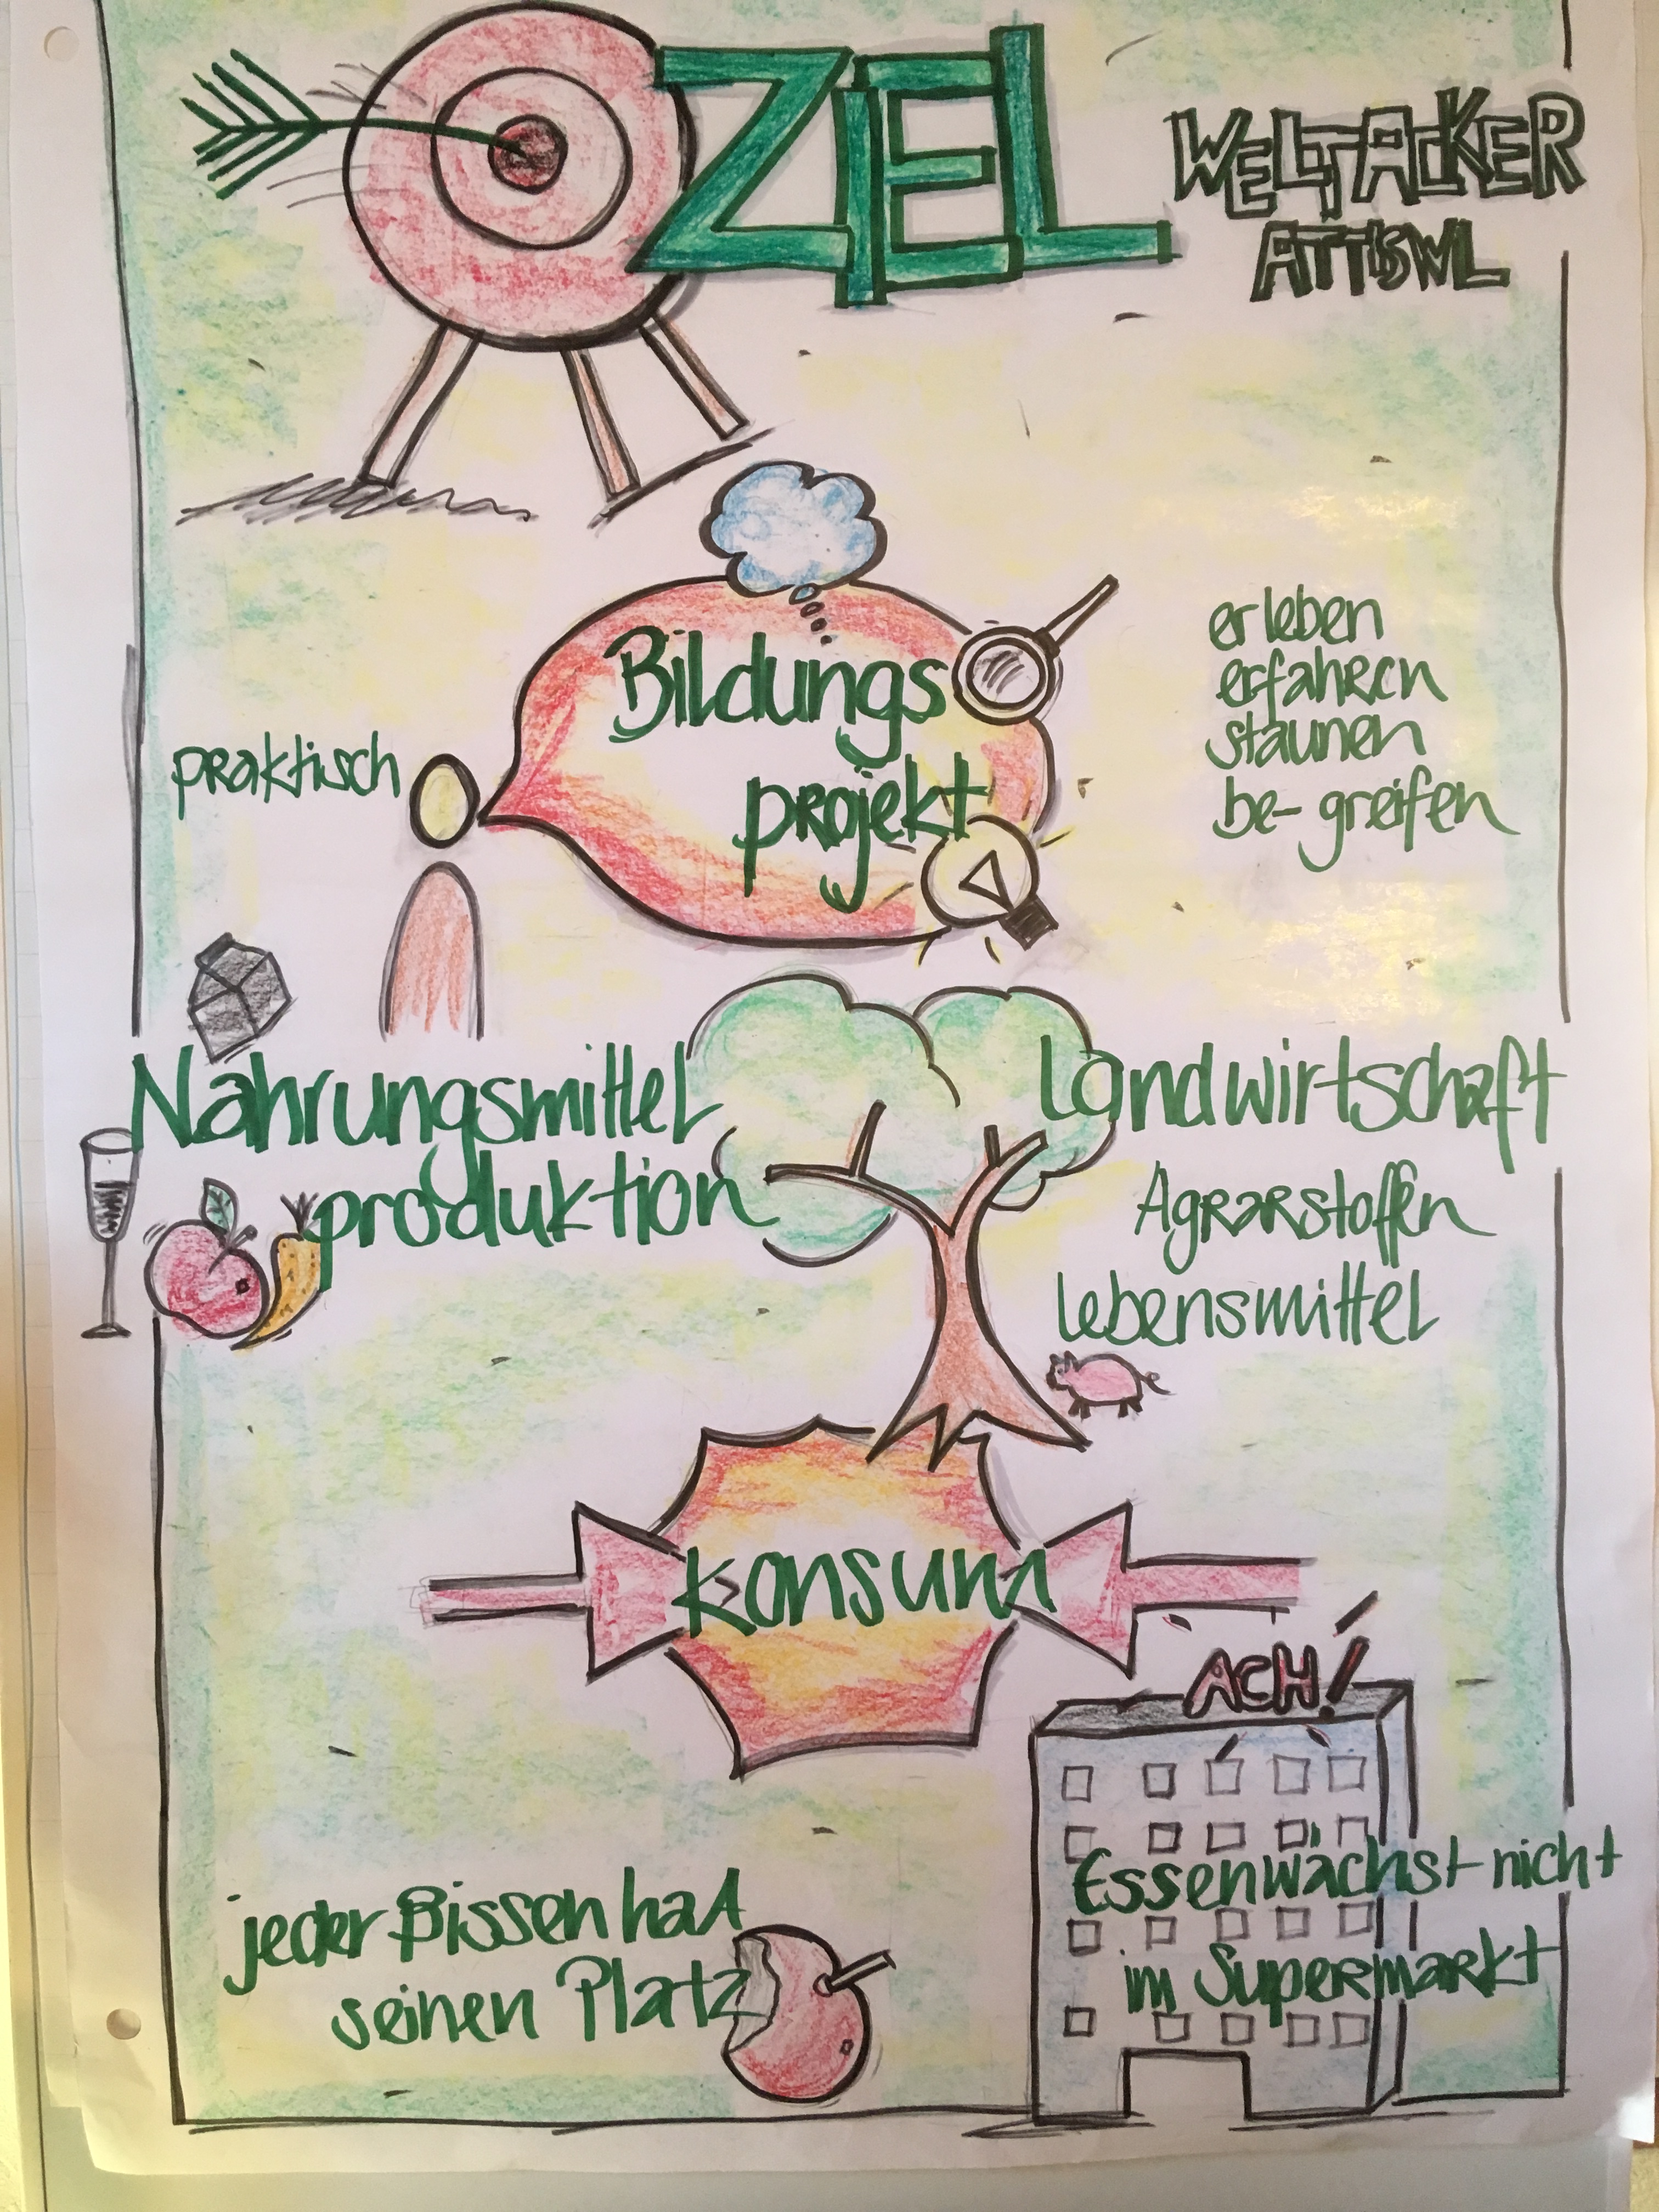 ZIEL
WELTACKER
ATTISWIL
Bildungs
projekt
praktisch
erleben
erfahren
staunen
be-greifen
Nahrungsmittel
produktion
Landwirtschaft
Agrarstoffen
Lebensmittel
Konsum
ACH!
jeder Bissen hat
seinen Platz
Essen wächst nicht
im Supermarkt